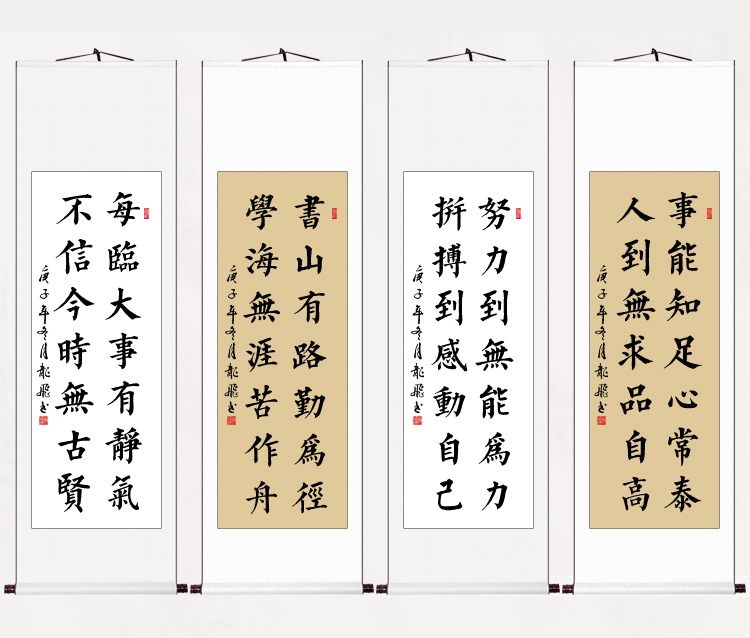 每臨大事有靜氣
不信今時無古賢
庚子年冬月龍飛書
書山有路勤為徑
學海無涯苦作舟
庚子年冬月龍飛書
努力到無能為力
拚搏到感動自己
庚子年冬月龍飛書
事能知足心常泰
人到無求品自高
庚子年冬月龍飛書